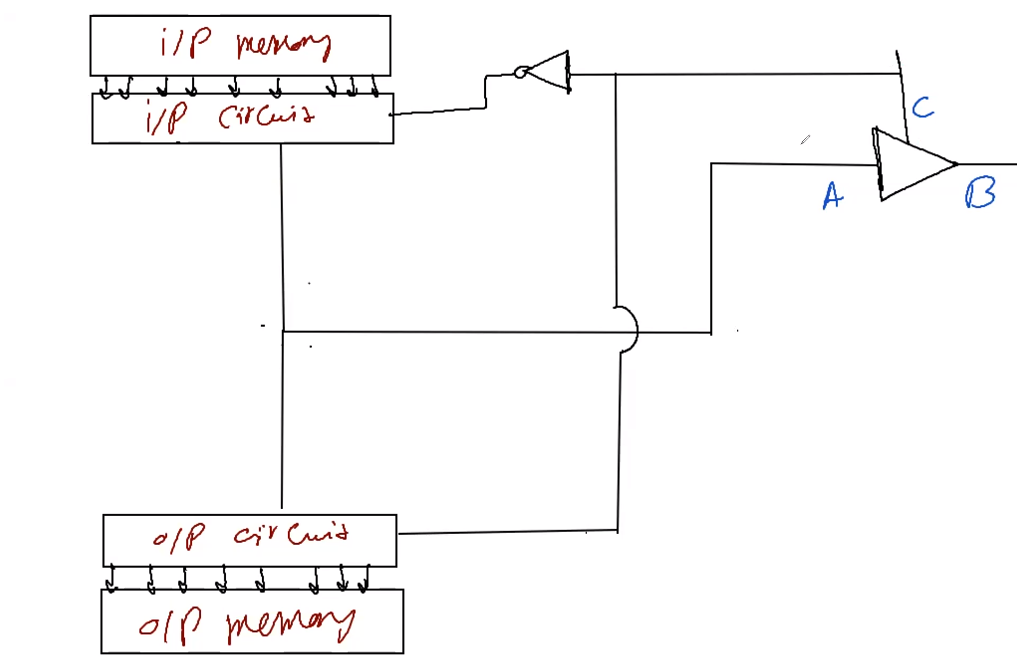 i/P memory
i/P circuit
C
A
B
o/P circuit
o/P memory